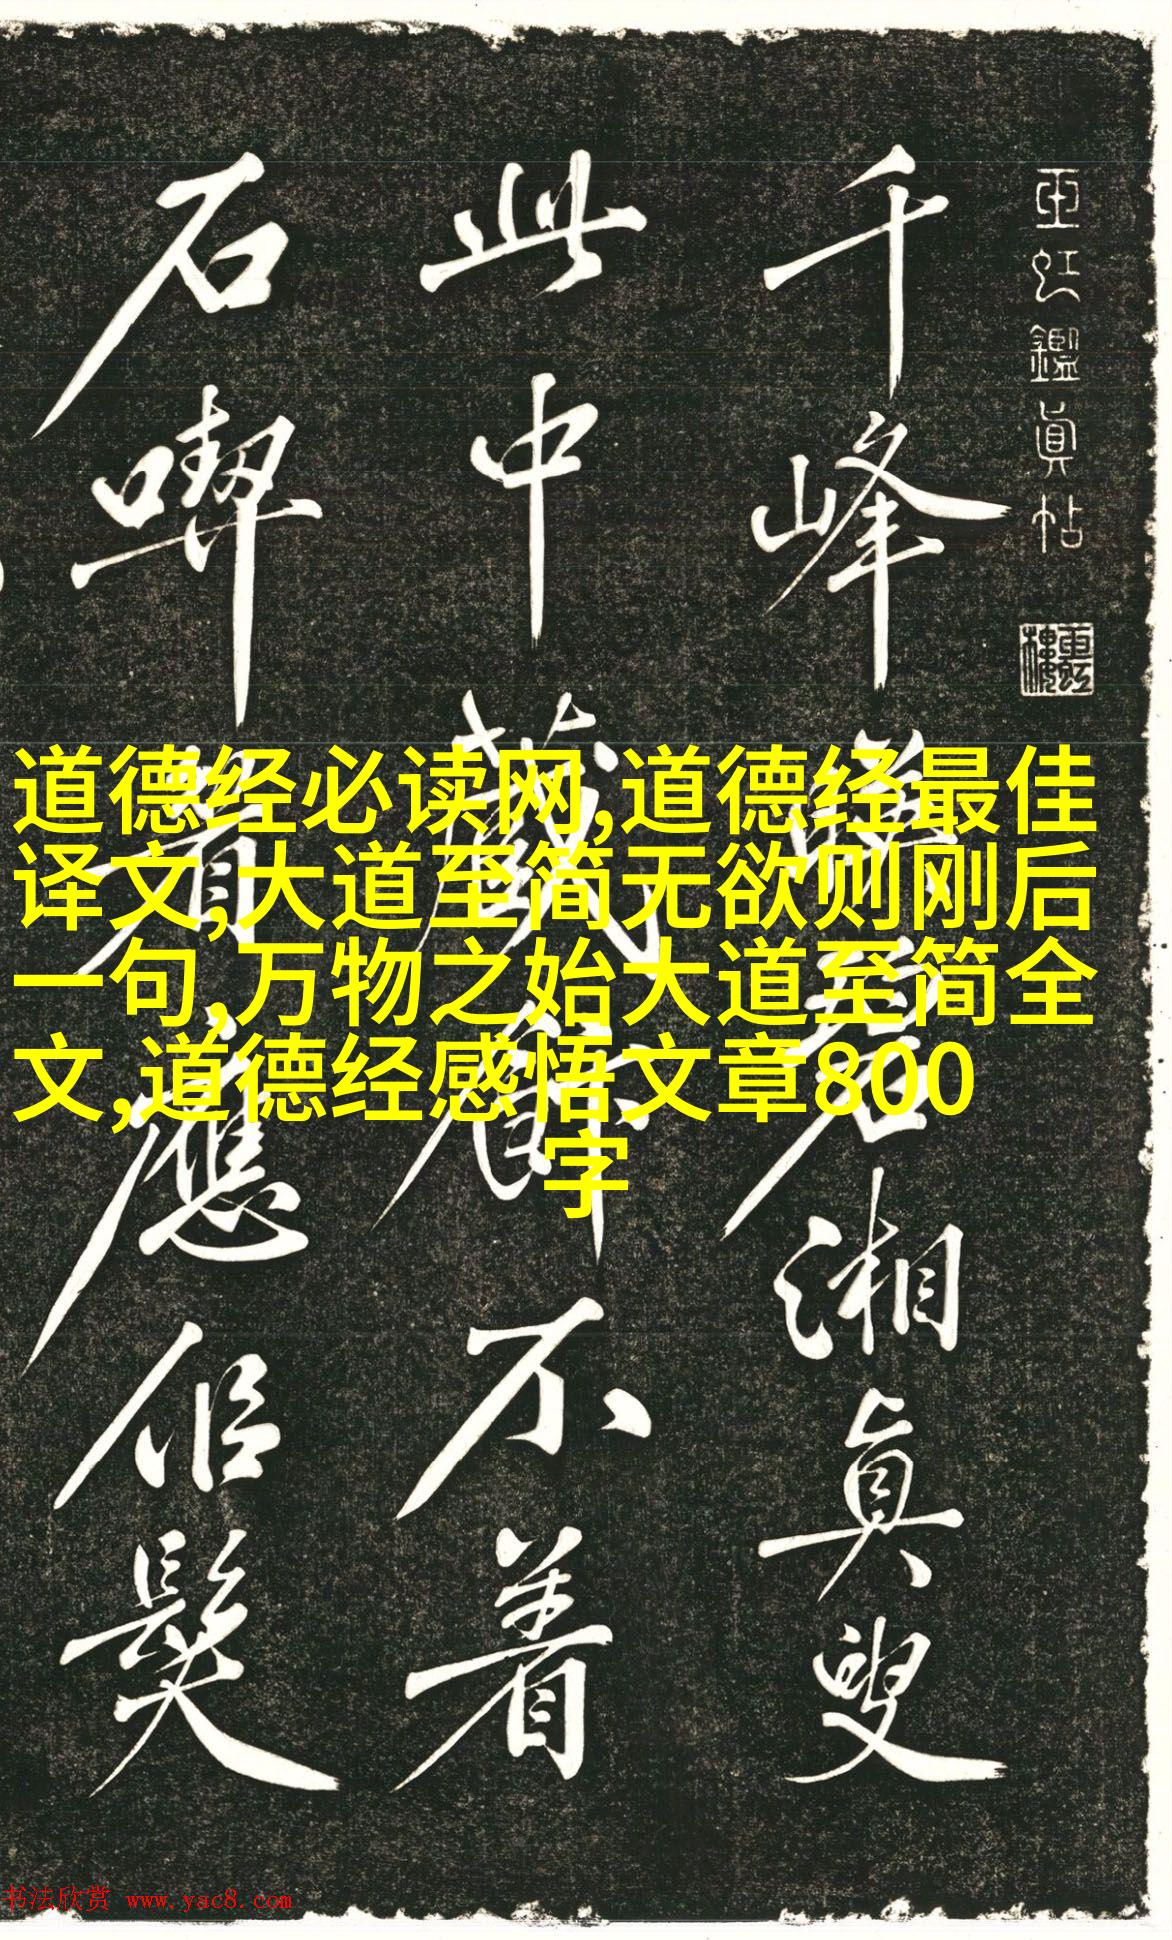 亚虹鑑真帖
千峰
湘真叟
此中藏
不着
石
看應
髮
道德经必读网,道德经最佳
译文,大道至简无欲则刚后
一句,万物之始大道至简全
文,道德经感悟文章800
字
书法欣赏 www.yac8.com